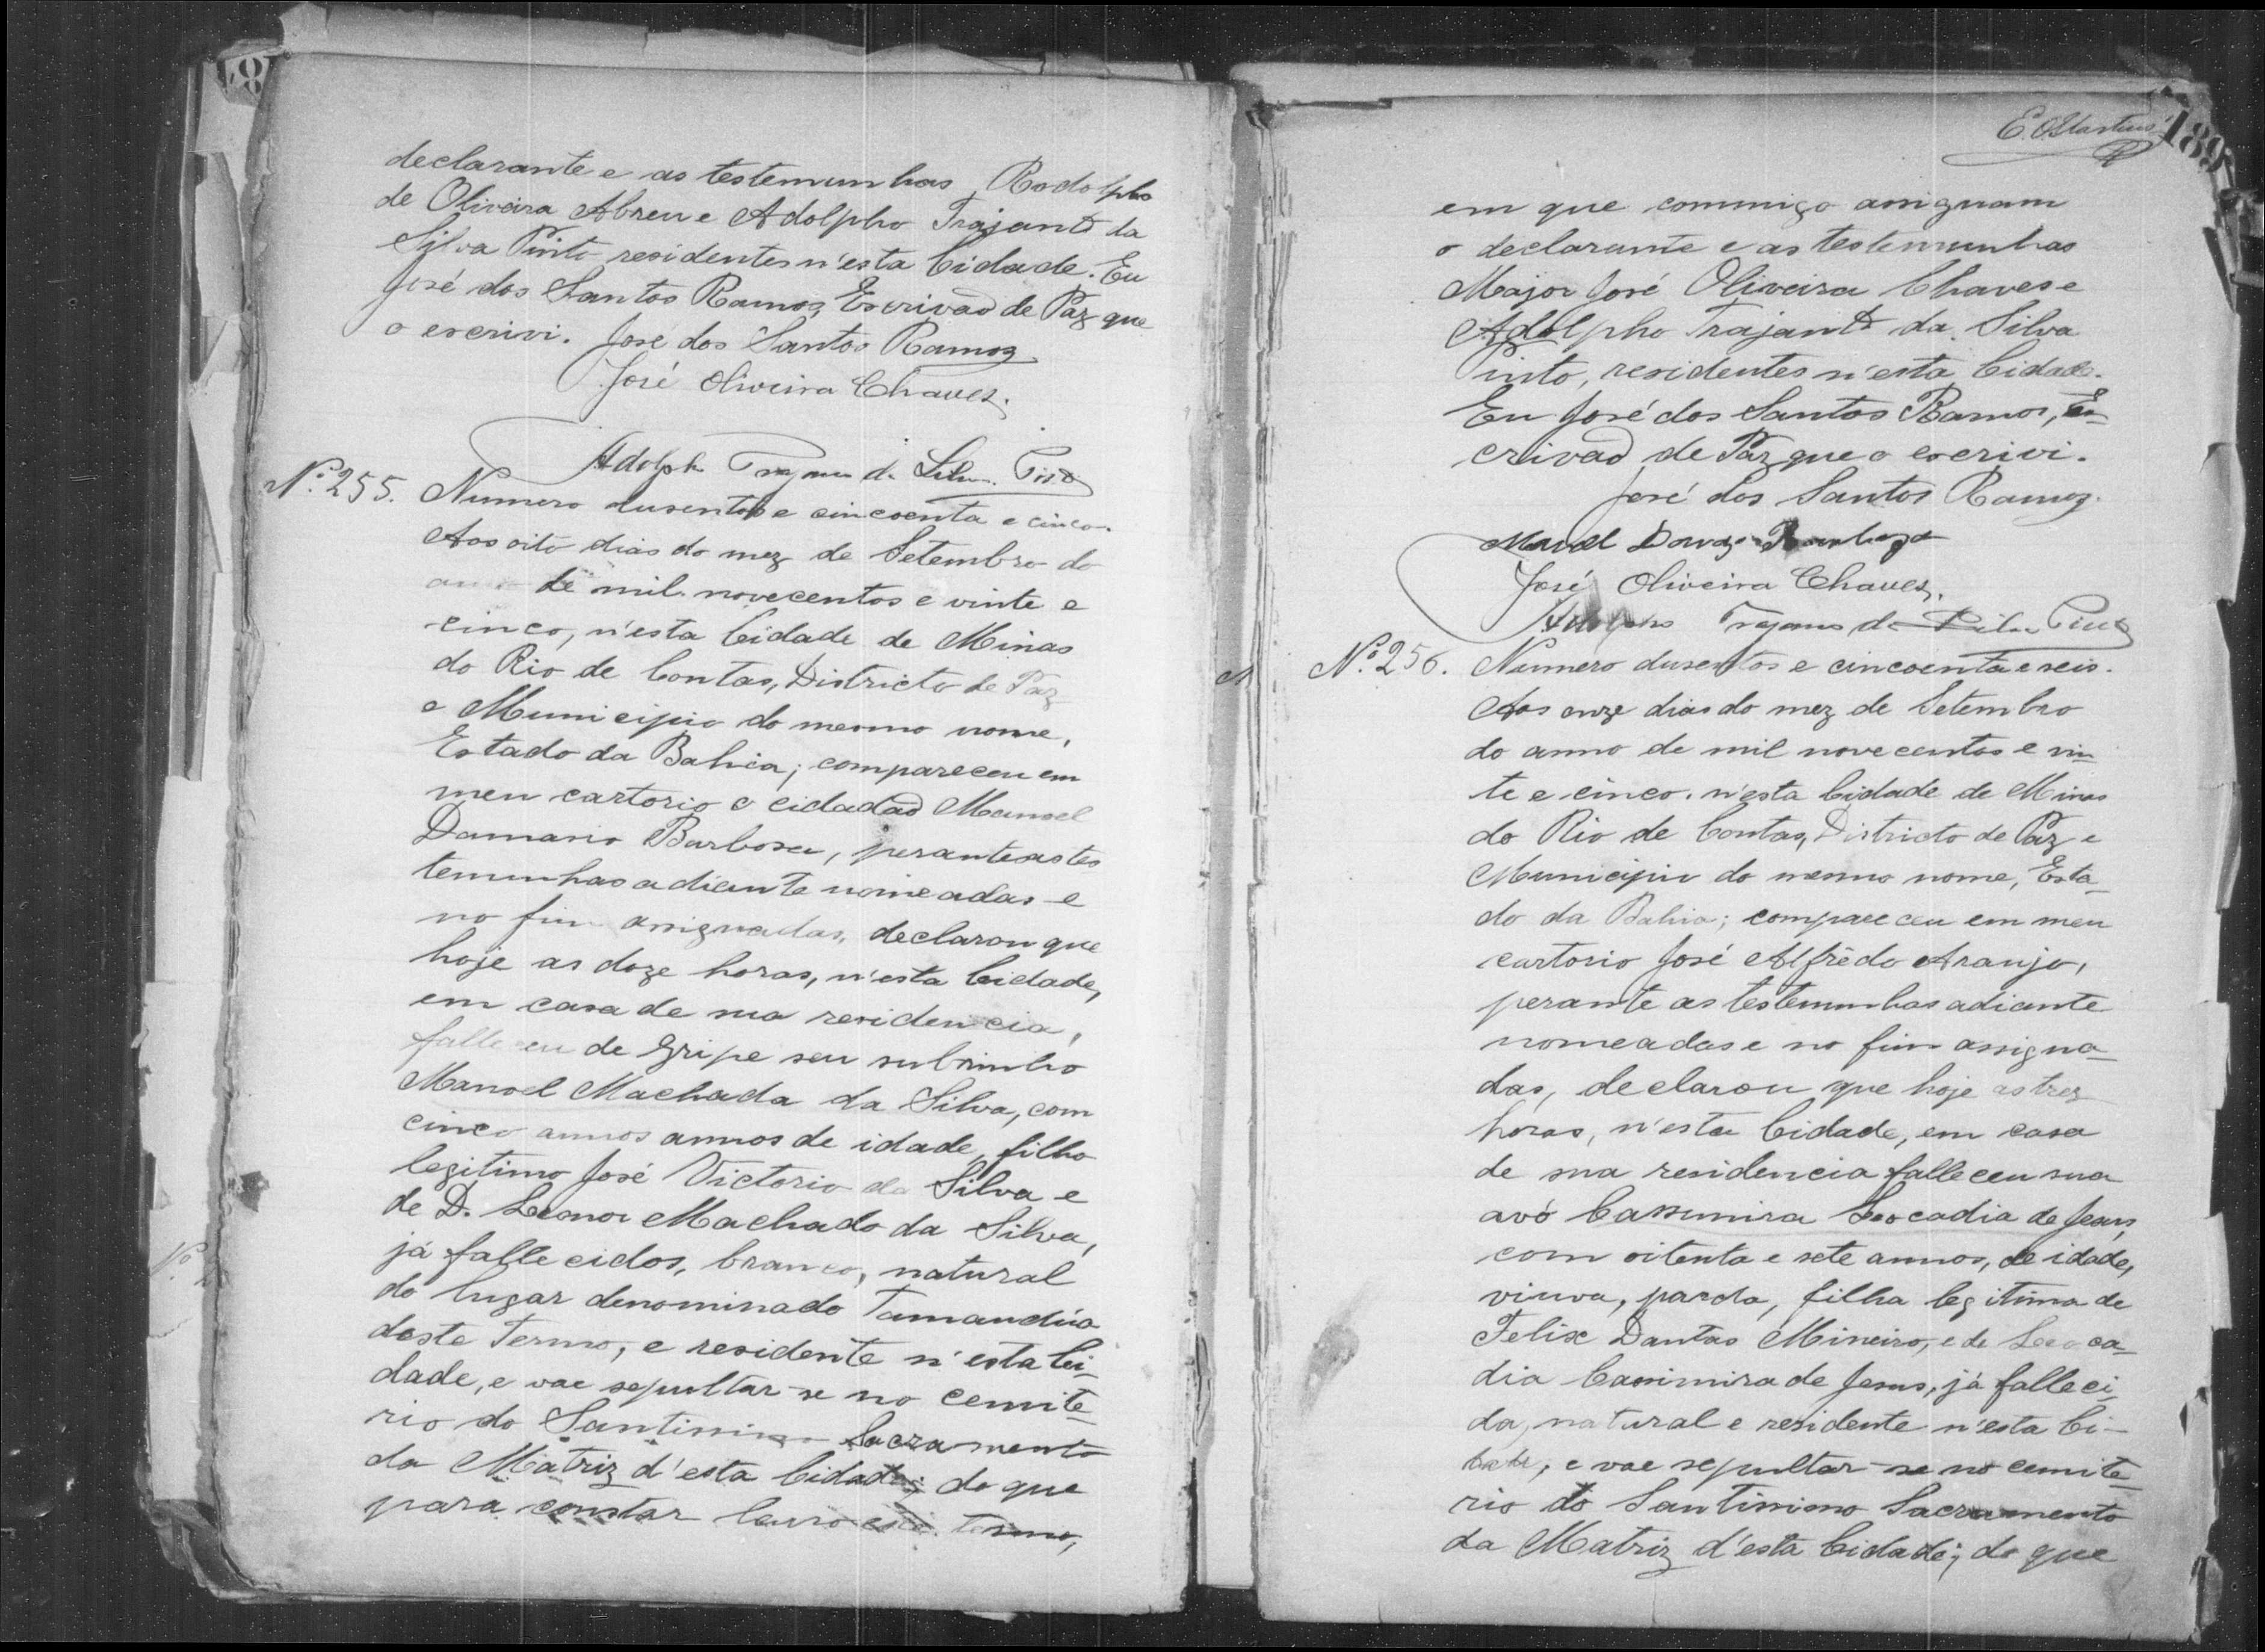 declarante e as testemunhas Rodolpho
de Oliveira Abreu e Adolpho Trajano da
Silva Pinto residentes n'esta Cidade. Eu
José dos Santos Ramos, Escrivaõ de Paz que
o escrivi. José dos Santos Ramos
José Oliveira Chaves.
Adolpho Trajano da Silva Pinto
Nº 255. Numero dusentos e cincoenta e cinco.
Aos oito dias do mez de Setembro do
anno de mil novecentos e vinte e
cinco, n'esta Cidade de Minas
do Rio de Contas, Districto de Paz
e Municipio do mesmo nome,
Estado da Bahia; compareceu em
meu cartorio o cidadaõ Manoel
Damasio Barbosa, perante as tes
temunhas adiante nomeadas e
no fim assignadas, declarou que
hoje as doze horas, n'esta Cidade,
em casa de sua residencia,
falleceu de gripe seu subrinho
Manoel Machado da Silva, com
cinco annos annos de idade, filho
legitimo José Victorio da Silva e
de D. Leonor Machado da Silva,
já fallecidos, branco, natural
do lugar denominado Tamandúa
deste Termo, e residente n'esta Ci-
dade, e vae sepultar-se no cemite-
rio do Santissimo Sacramento
da Matriz d'esta Cidade; do que
para constar lavro este termo,
E. O. Martins
189
em que commigo assignam
o declarante e as testemunhas
Major José Oliveira Chaves e
Adolpho Trajano da Silva
Pinto, residentes n'esta Cidade.
Eu José dos Santos Ramos, Es-
crivaõ de Paz que o escrivi.
José dos Santos Ramos.
José Oliveira Chaves.
Adolpho Trajano da Silva Pinto
Nº 256. Numero dusentos e cincoenta e seis.
Aos onze dias do mez de Setembro
do anno de mil novecentos e vin-
te e cinco, n'esta Cidade de Minas
do Rio de Contas, Districto de Paz e
Municipio do mesmo nome, Esta-
do da Bahia; compareceu em meu
cartorio José Alfrêdo Araujo,
perante as testemunhas adiante
nomeadas e no fim assigna-
das, declarou que hoje as trez
horas, n'esta Cidade, em casa
de sua residencia falleceu sua
avó Cassemira Leocadia de Jesus,
com oitenta e sete annos, de idade,
viuva, parda, filha legitima de
Felix Dantas Mineiro, e de Leoca-
dia Casimira de Jesus, já falleci-
da, natural e residente n'esta Ci-
dade, e vae sepultar-se no cemite-
rio do Santissimo Sacramento
da Matriz d'esta Cidade; do que